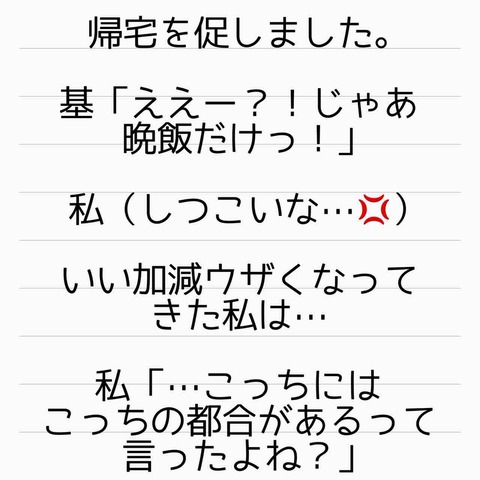 帰宅を促しました。
基「ええー？！じゃあ
晩飯だけっ！」
私（しつこいな…💢）
いい加減ウザくなって
きた私は…
私「…こっちには
こっちの都合があるって
言ったよね？」